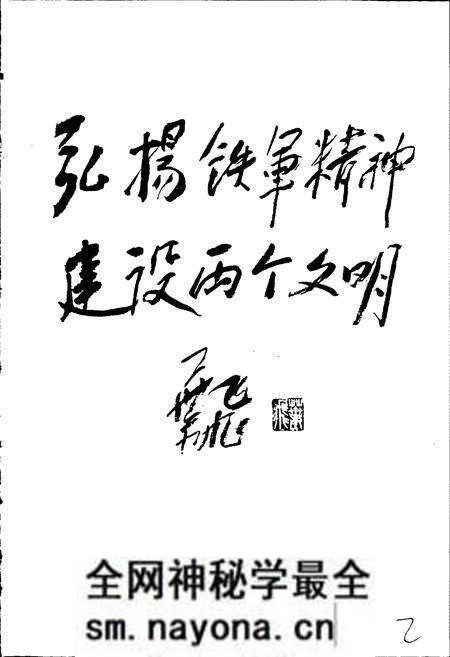 弘揚铁軍精神
建设两个文明
叶飞
全网神秘学最全
sm.nayona.cn